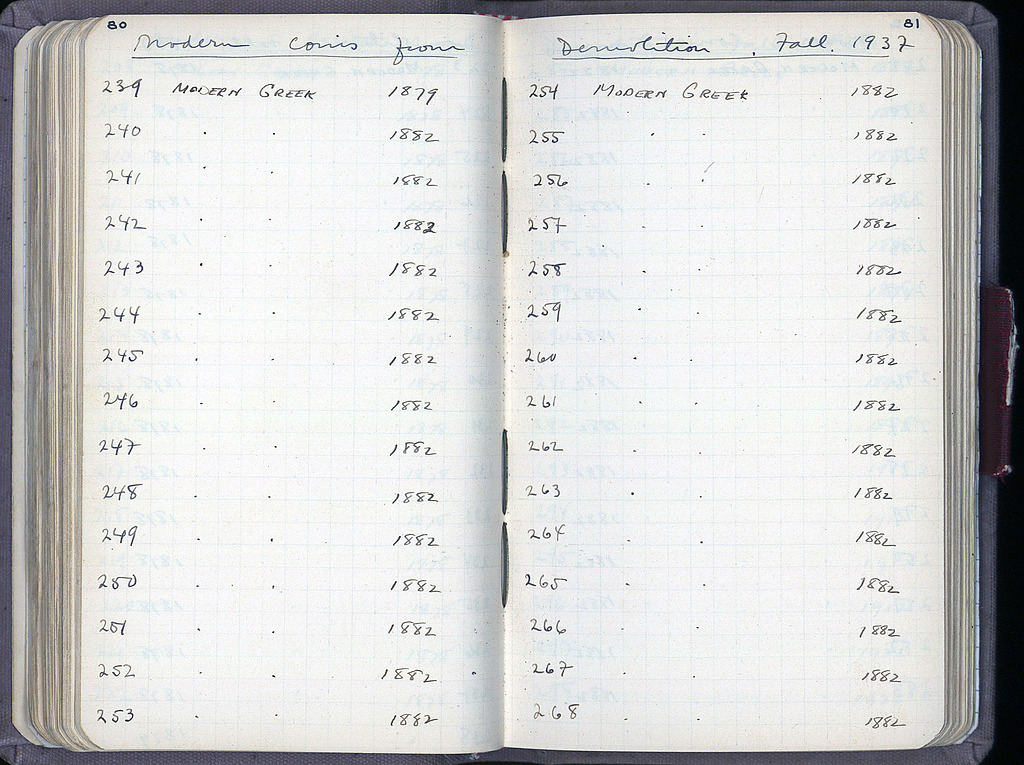 80
Modern Coins from
239 MODERN GREEK 1879
240 · · 1882
241 · · 1882
242 · · 1882
243 · · 1882
244 · · 1882
245 · · 1882
246 · · 1882
247 · · 1882
248 · · 1882
249 · · 1882
250 · · 1882
251 · · 1882
252 · · 1882
253 · · 1882
81
Demolition. Fall. 1937
254 MODERN GREEK 1882
255 · · 1882
256 · · 1882
257 · · 1882
258 · · 1882
259 · · 1882
260 · · 1882
261 · · 1882
262 · · 1882
263 · · 1882
264 · · 1882
265 · · 1882
266 · · 1882
267 · · 1882
268 · · 1882